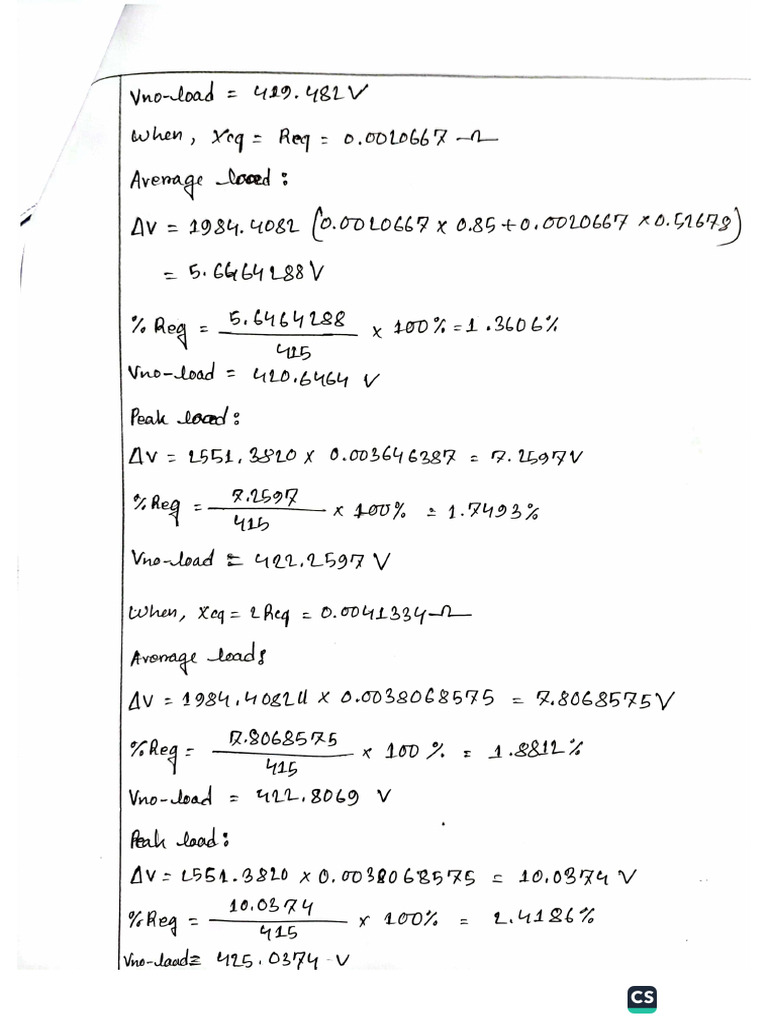 Vno-load = 419.482 V
When, Xeq = Req = 0.0020667 Ω
Average load:
ΔV = 1984.4082 (0.0020667 × 0.85 + 0.0020667 × 0.52678)
= 5.6464288 V
% Reg = 5.6464288 / 415 × 100% = 1.3606%
Vno-load = 420.6464 V
Peak load:
ΔV = 2551.3820 × 0.003646387 = 7.2597 V
% Reg = 7.2597 / 415 × 100% = 1.7493%
Vno-load = 422.2597 V
When, Xeq = 2Req = 0.0041334 Ω
Average load:
ΔV = 1984.40824 × 0.0038068575 = 7.8068575 V
% Reg = 7.8068575 / 415 × 100% = 1.8812%
Vno-load = 422.8069 V
Peak load:
ΔV = 2551.3820 × 0.0038068575 = 10.0374 V
% Reg = 10.0374 / 415 × 100% = 2.4186%
Vno-load = 425.0374 V
CS